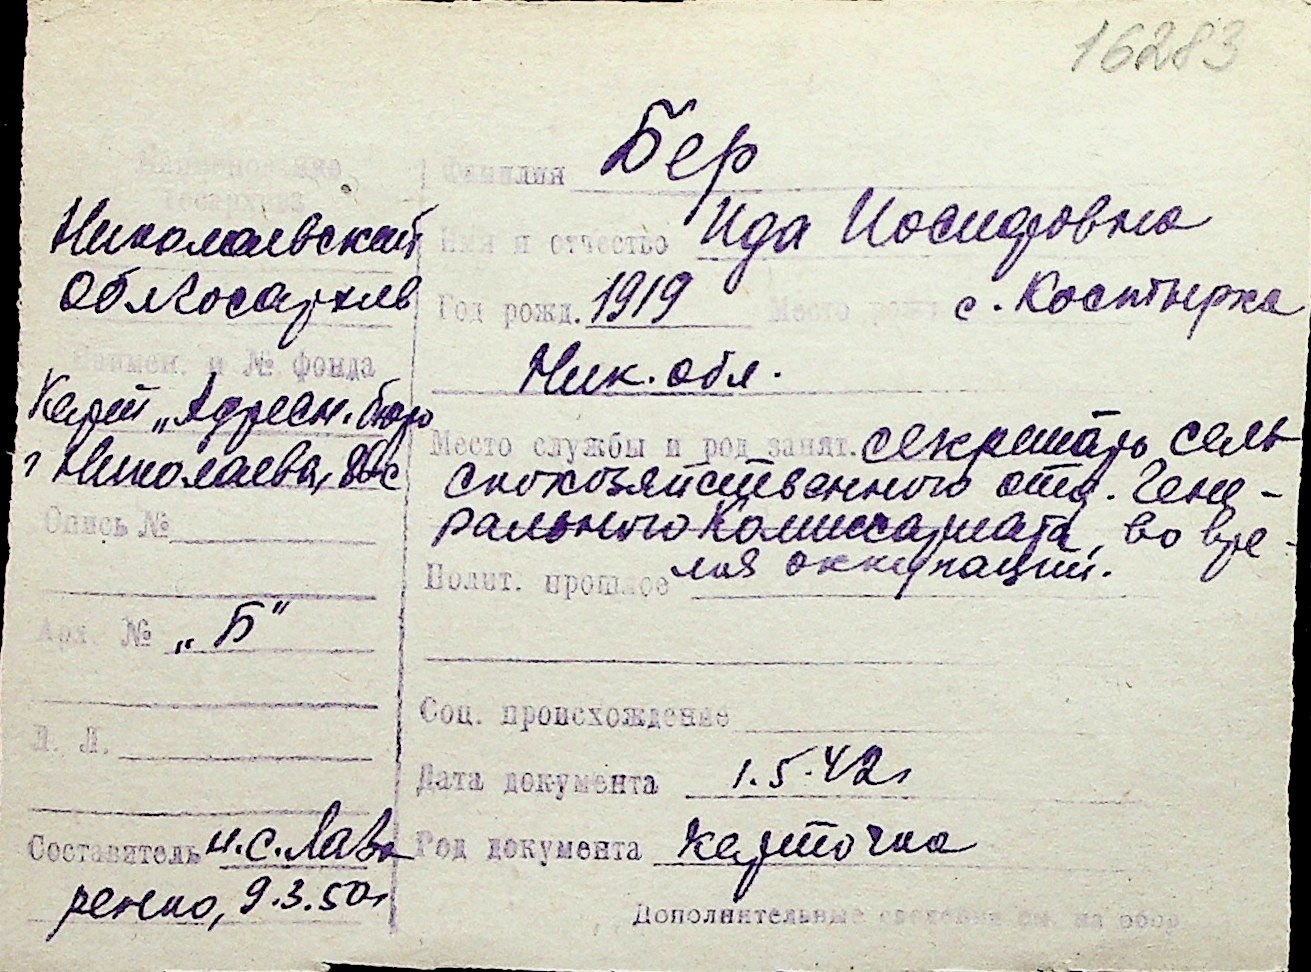 16283
Наименование
Госархива
Николаевский
Облгосархив
Наимен. и № фонда
Карт. „Адресн. бюро
г Николаева,
Опись №
Арх. № „Б"
Л. Л.
Составитель н.с. Лав
ренко, 9.3.50г
Фамилия Бер
Имя и отчество Ида Иосифовна
Год рожд. 1919 Место рожд. с. Костырка
Ник. обл.
Место службы и род занят. секретарь сель
скохозяйственного отд. Гене-
рального Комиссариата, во вре-
мя оккупации.
Полит. прошлое
Соц. происхождение
Дата документа 1.5.42г
Род документа карточка
Дополнительные сведения см. на обор